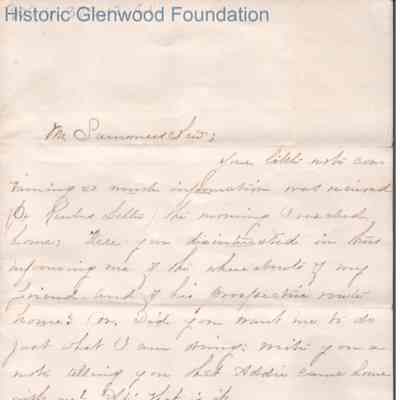 Historic Glenwood Foundation
Mr
Your little note con
taining so much information was received
the morning I reached
home; Were you disinterested in thus
informing me of the whereabouts of my
friend and of his prospective route
home? Or, did you want me to do
just what I am doing; write you a
note telling you that Addie came home
with me? That is it